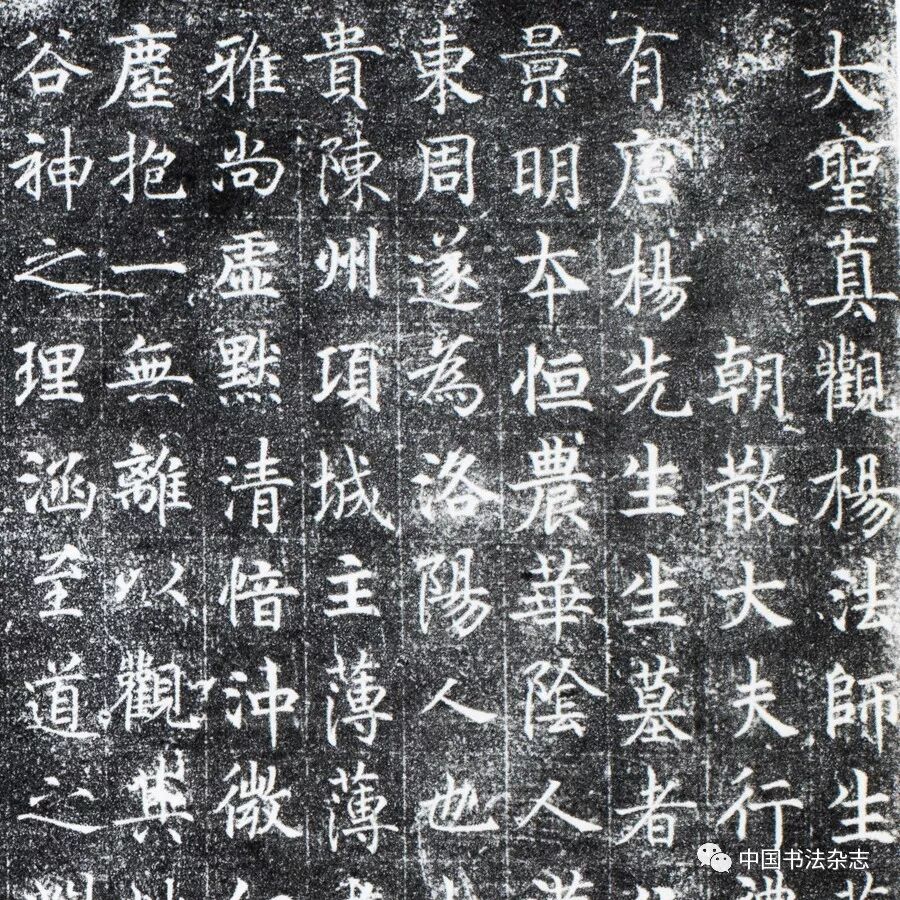 大聖真觀楊法師生
朝散大夫行
有唐楊先生生墓者
景明本恒農華陰人
東周遂為洛陽人也
貴陳州項城主薄薄
雅尚虛默清愔沖微
塵抱一無離以觀其
谷神之理涵至道之
中国书法杂志